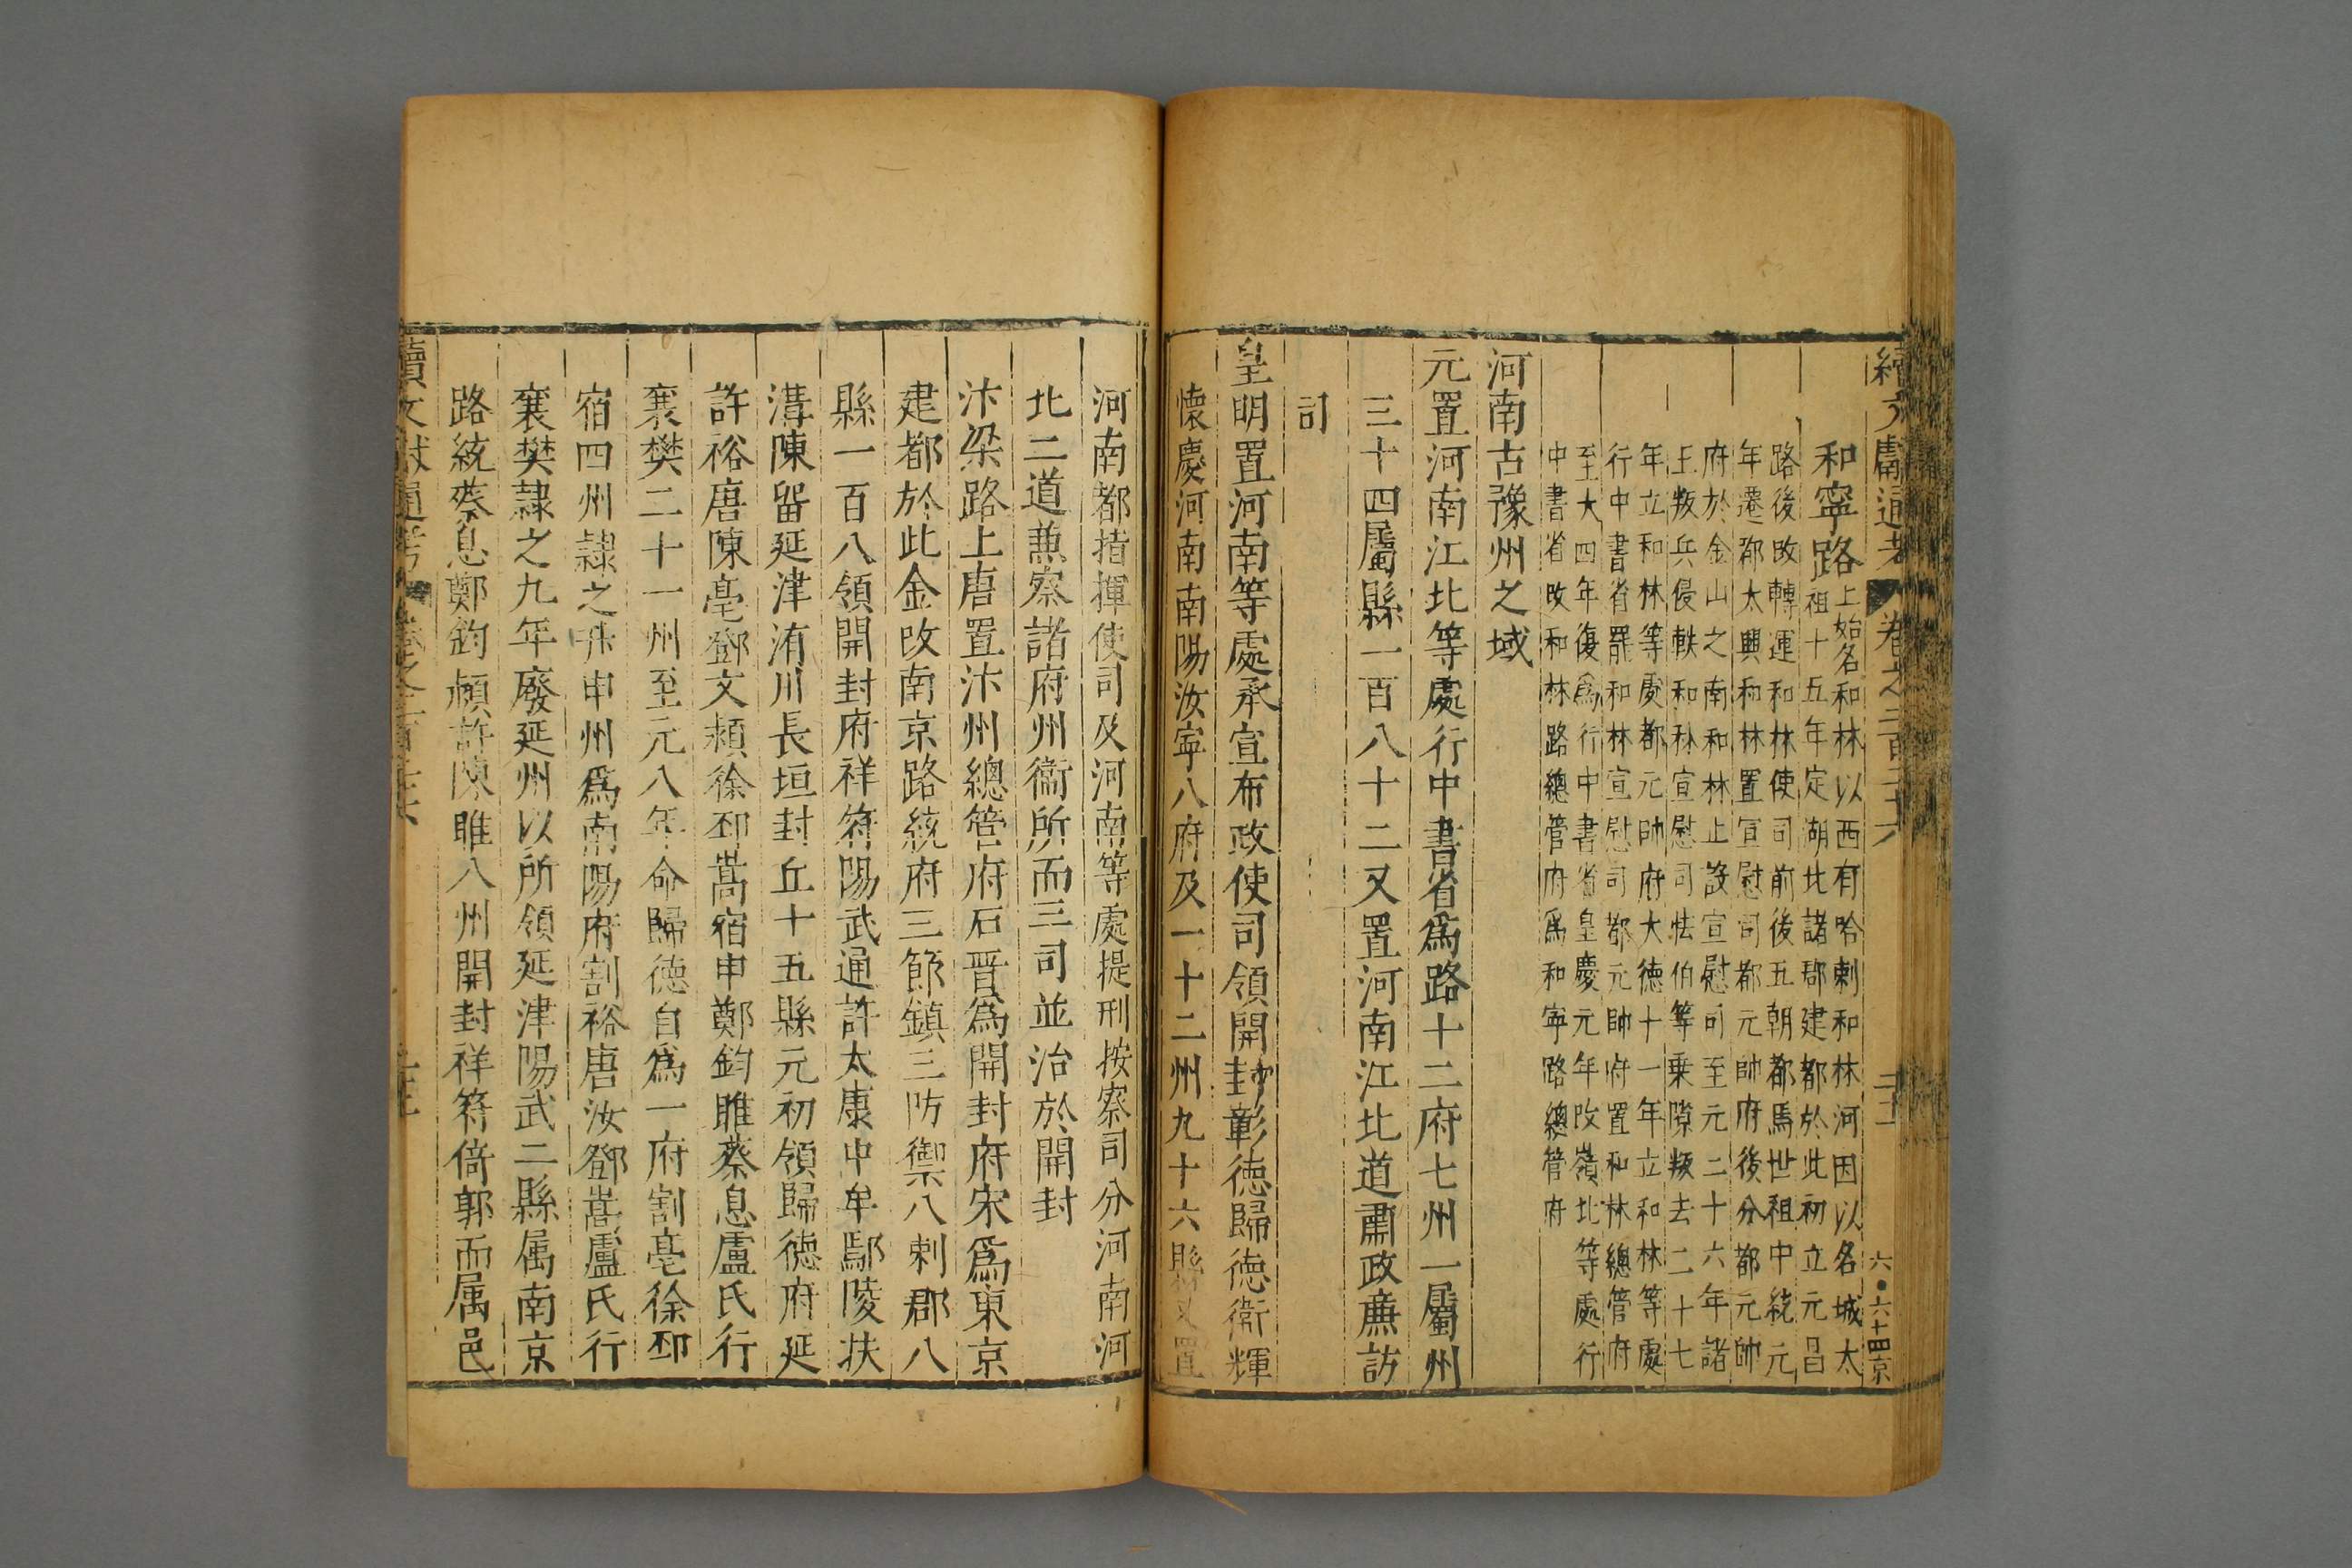 續文獻通考 卷之二百二十六 六●六十四京
和寧路上始名和林以西有哈剌和林河因以名城太
祖十五年定湖北諸郡建都於此初立元昌
路後改轉運和林使司前後五朝都焉世祖中統元
年遷都大興和林置宣慰司都元帥府後分都元帥
府於金山之南和林止設宣慰司至元二十六年諸
王叛兵侵軼和林宣慰司怯伯等乗隙叛去二十七
年立和林等處都元帥府大德十一年立和林等處
行中書省罷和林宣慰司都元帥府置和林總管府
至大四年復爲行中書省皇慶元年改嶺北等處行
中書省改和林路總管府爲和寧路總管府
河南古豫州之域
元置河南江北等處行中書省爲路十二府七州一屬州
三十四屬縣一百八十二又置河南江北道肅政廉訪
司
皇明置河南等處承宣布政使司領開封彰德歸德衛輝
懷慶河南南陽汝寧八府及一十二州九十六縣又置
河南都指揮使司及河南等處提刑按察司分河南河
北二道兼察諸府州衞所而三司並治於開封
汴梁路上唐置汴州總管府石晋爲開封府宋爲東京
建都於此金改南京路統府三節鎮三防禦八刺郡八
縣一百八領開封府祥符陽武通許太康中牟鄢陵扶
溝陳留延津洧川長垣封丘十五縣元初領歸德府延
許裕唐陳亳鄧文潁徐邳嵩宿申鄭鈞睢蔡息盧氏行
襄樊二十一州至元八年命歸德自爲一府割亳徐邳
宿四州隷之升申州爲南陽府割裕唐汝鄧嵩盧氏行
襄樊隷之九年廢延州以所領延津陽武二縣属南京
路統蔡息鄭鈞潁許陳睢八州開封祥符倚郭而属邑
續文獻通考 卷之二百二十六